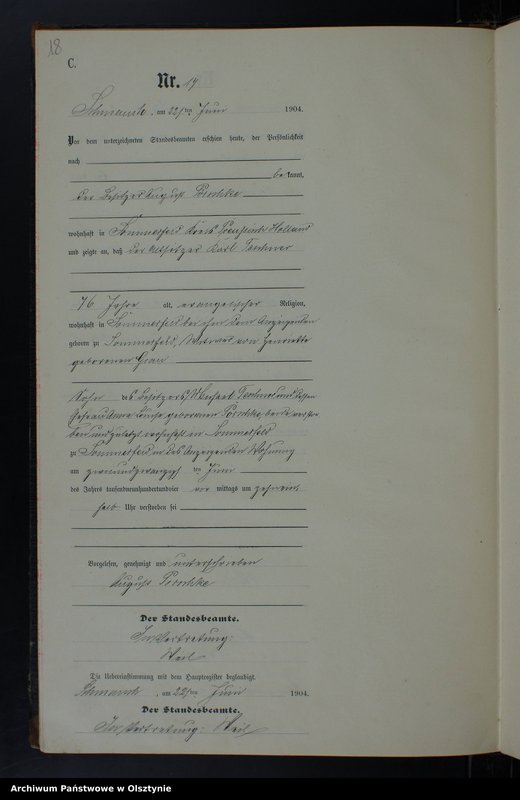 18
C.
Nr. 17
Schmauch, am 22ten Juni 1904.
Vor dem unterzeichneten Standesbeamten erschien heute, der Persönlichkeit
nach
bekannt,
der Besitzer August Porschke
wohnhaft in Sommerfeld Kreis Preußisch Holland
und zeigte an, daß der Altsitzer Karl
76 Jahre alt, evangelischer Religion,
wohnhaft in Sommerfeld bei ihm dem Anzeigenden
geboren zu Sommerfeld, Witwer von Henriette
geborenen
Sohn des Besitzers und dessen
Ehefrau geborenen Porschke, beide verstor
ben und zuletzt wohnhaft in Sommerfeld
zu Sommerfeld in des Anzeigenden Wohnung
am zweiundzwanzigsten Juni
des Jahres tausendneunhundertundvier vor mittags um
halb Uhr verstorben sei
Vorgelesen, genehmigt und unterschrieben
August Porschke
Der Standesbeamte.
In Vertretung:
Weil
Die Uebereinstimmung mit dem Hauptregister beglaubigt.
Schmauch, am 22ten Juni 1904.
Der Standesbeamte.
In Vertretung: Weil
Archiwum Państwowe w Olsztynie